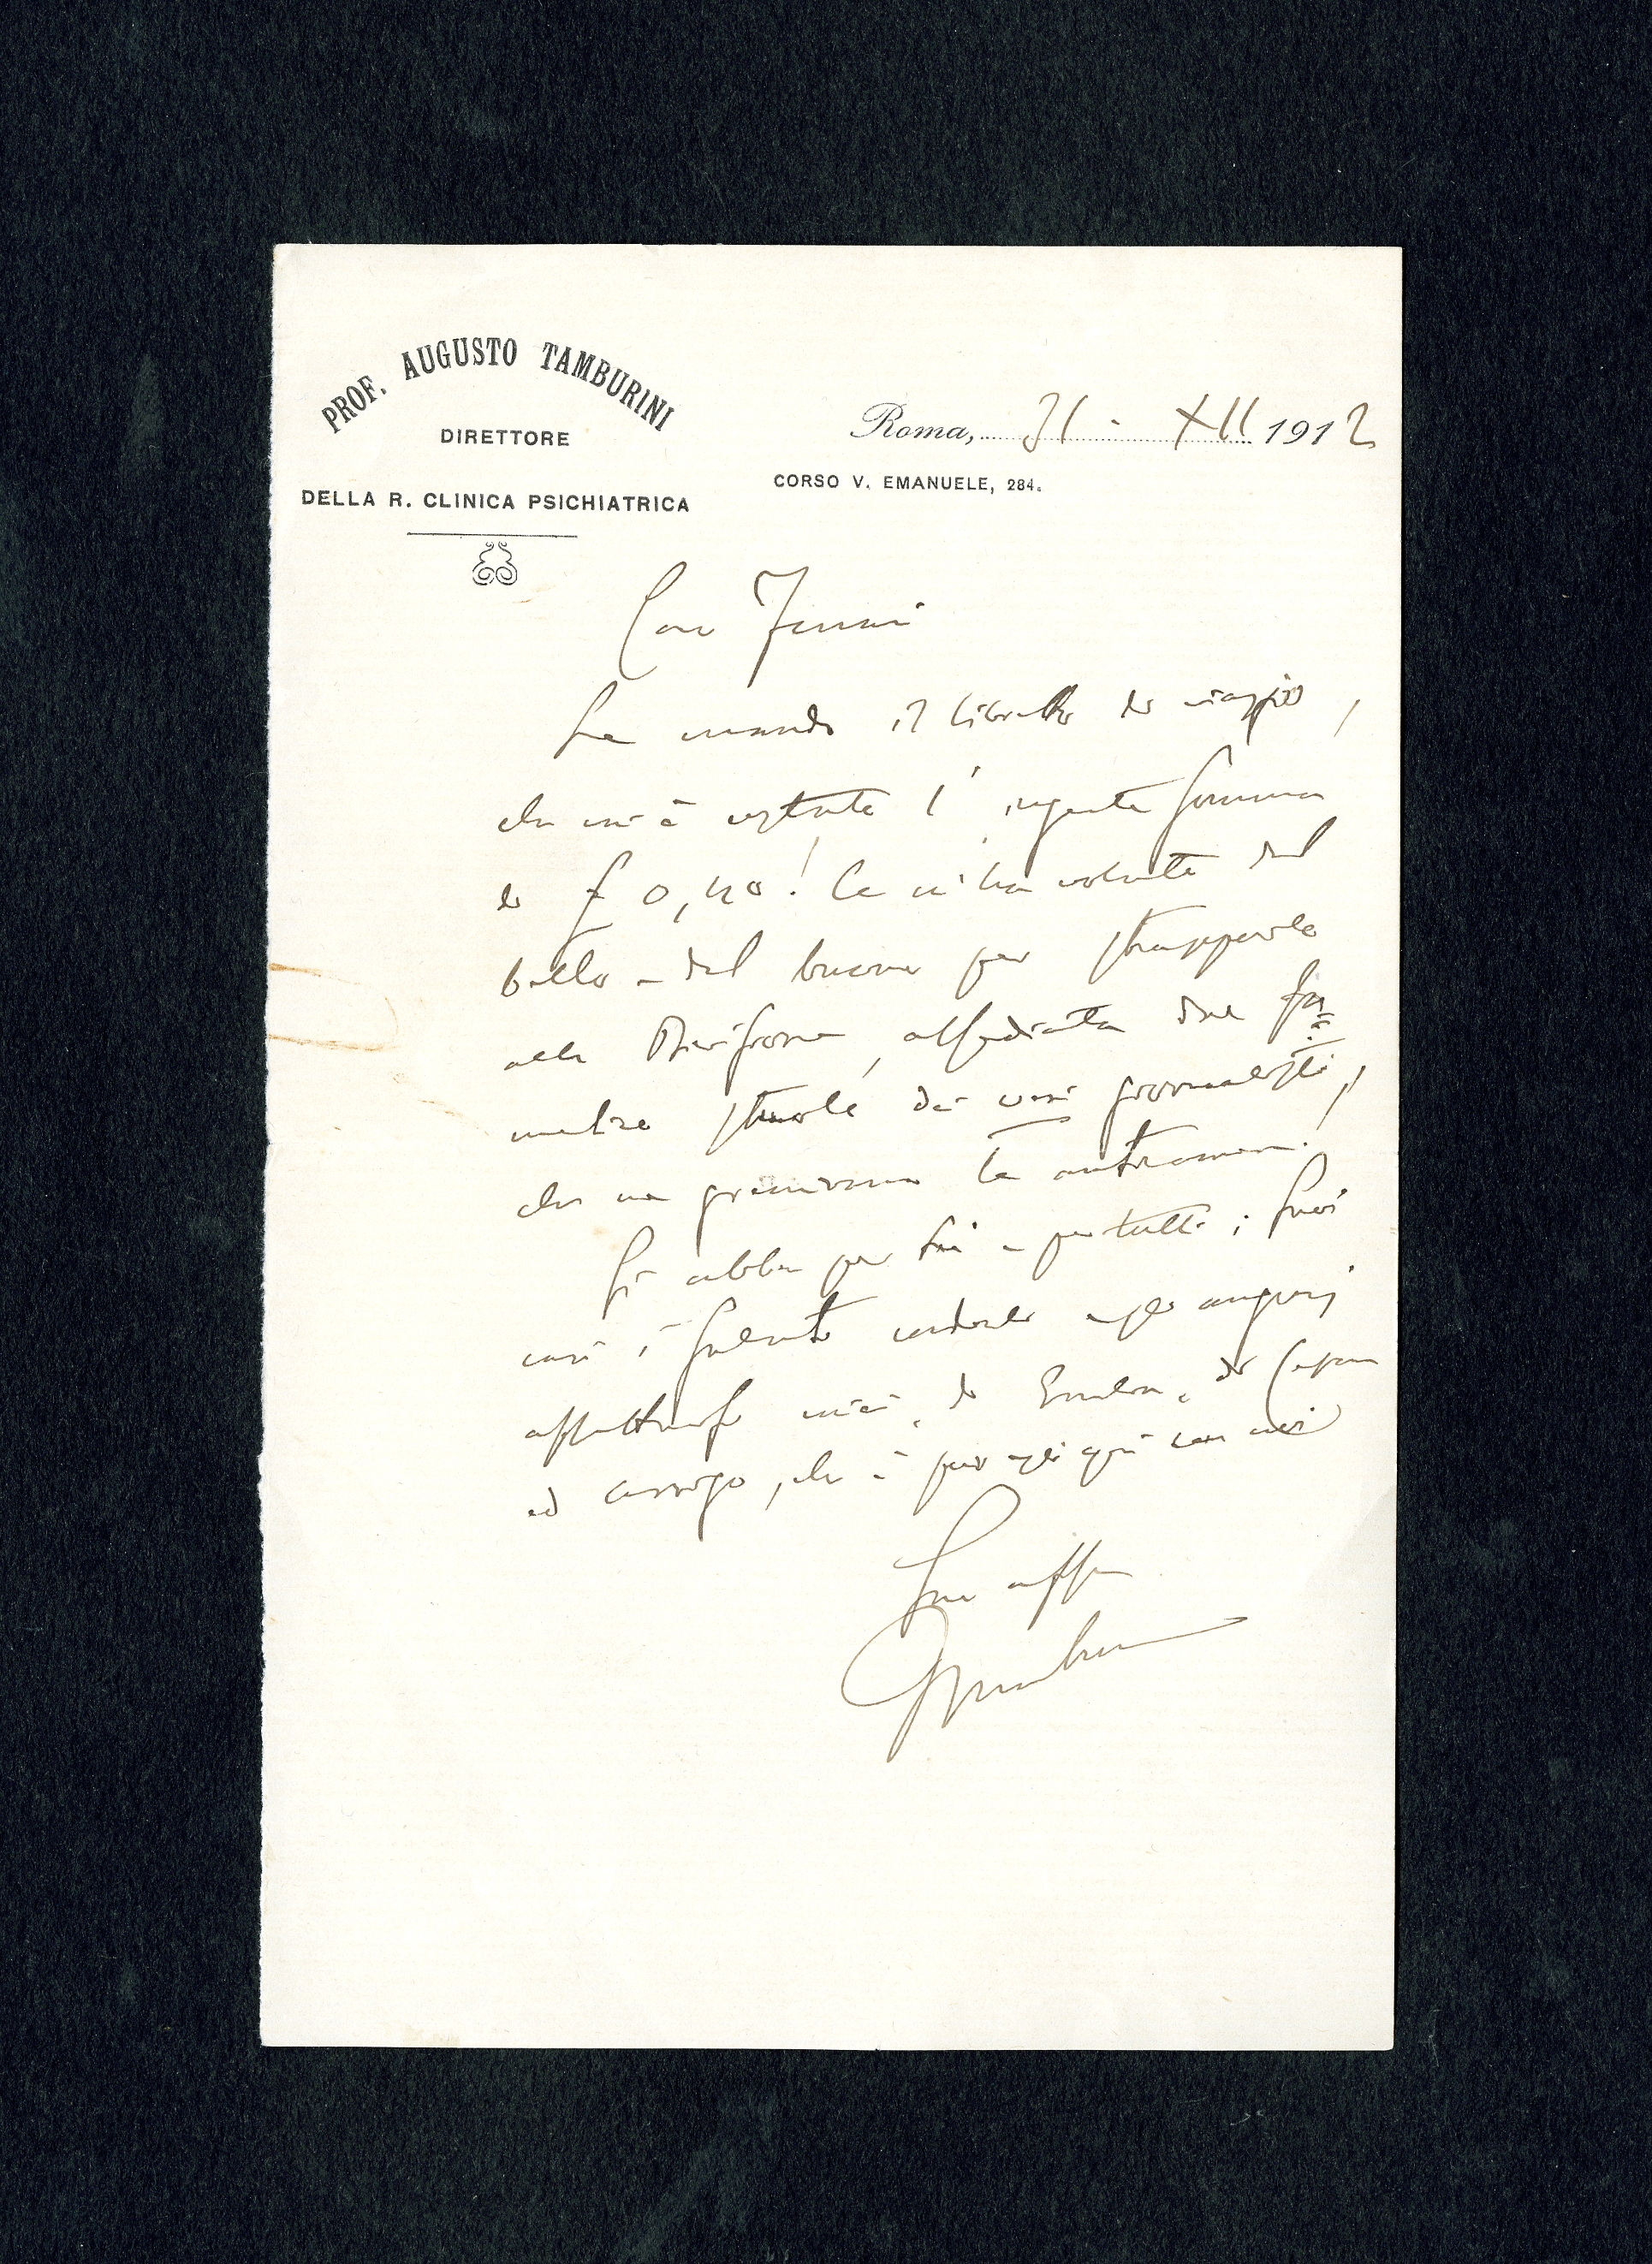 PROF. AUGUSTO TAMBURINI
DIRETTORE
DELLA R. CLINICA PSICHIATRICA
Roma, 31 - XII 1912
CORSO V. EMANUELE, 284.
Caro Ferrari
Le mando il libretto di viaggio,
che mi è costato l'ingente somma
di £ 0,40! Ce n'ha voluto del
bello e del buono per strapparlo
alla Divisione, assediata dal fa=
melico stuolo dei veri giornalisti,
che ne
Si abbia per Lei e per tutti i suoi
cari i saluti cordiali e gli augurj
affettuosi miei, di Emilia, di
ed Arrigo, che è pur egli qui con noi
Suo aff
Tamburini